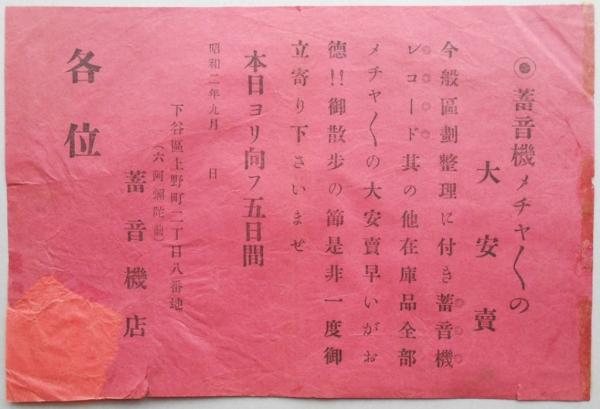 ◉蓄音機メチャ〱の
大安賣
今般區劃整理に付き蓄音機
レコード其の他在庫品全部
メチャ〱の大安賣早いがお
德!!御散步の節是非一度御
立寄り下さいませ
本日ヨリ向フ五日間
昭和二年九月　日
下谷區上野町二丁目八番地
(六阿彌陀前)
蓄音機店
各位